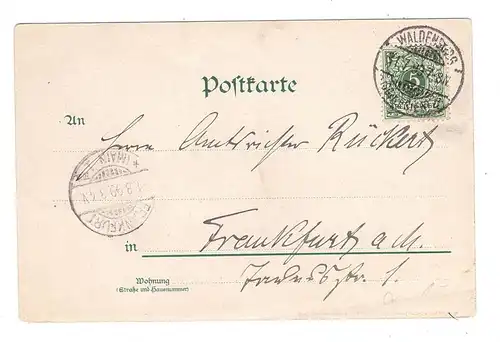 WALDENBURG
5
Postkarte
An
Herrn Amtsrichter Rückert
FRANKFURT
(MAIN)
in
Frankfurt a M.
Wohnung
(Straße und Hausnummer)
Taunusstr. 1.